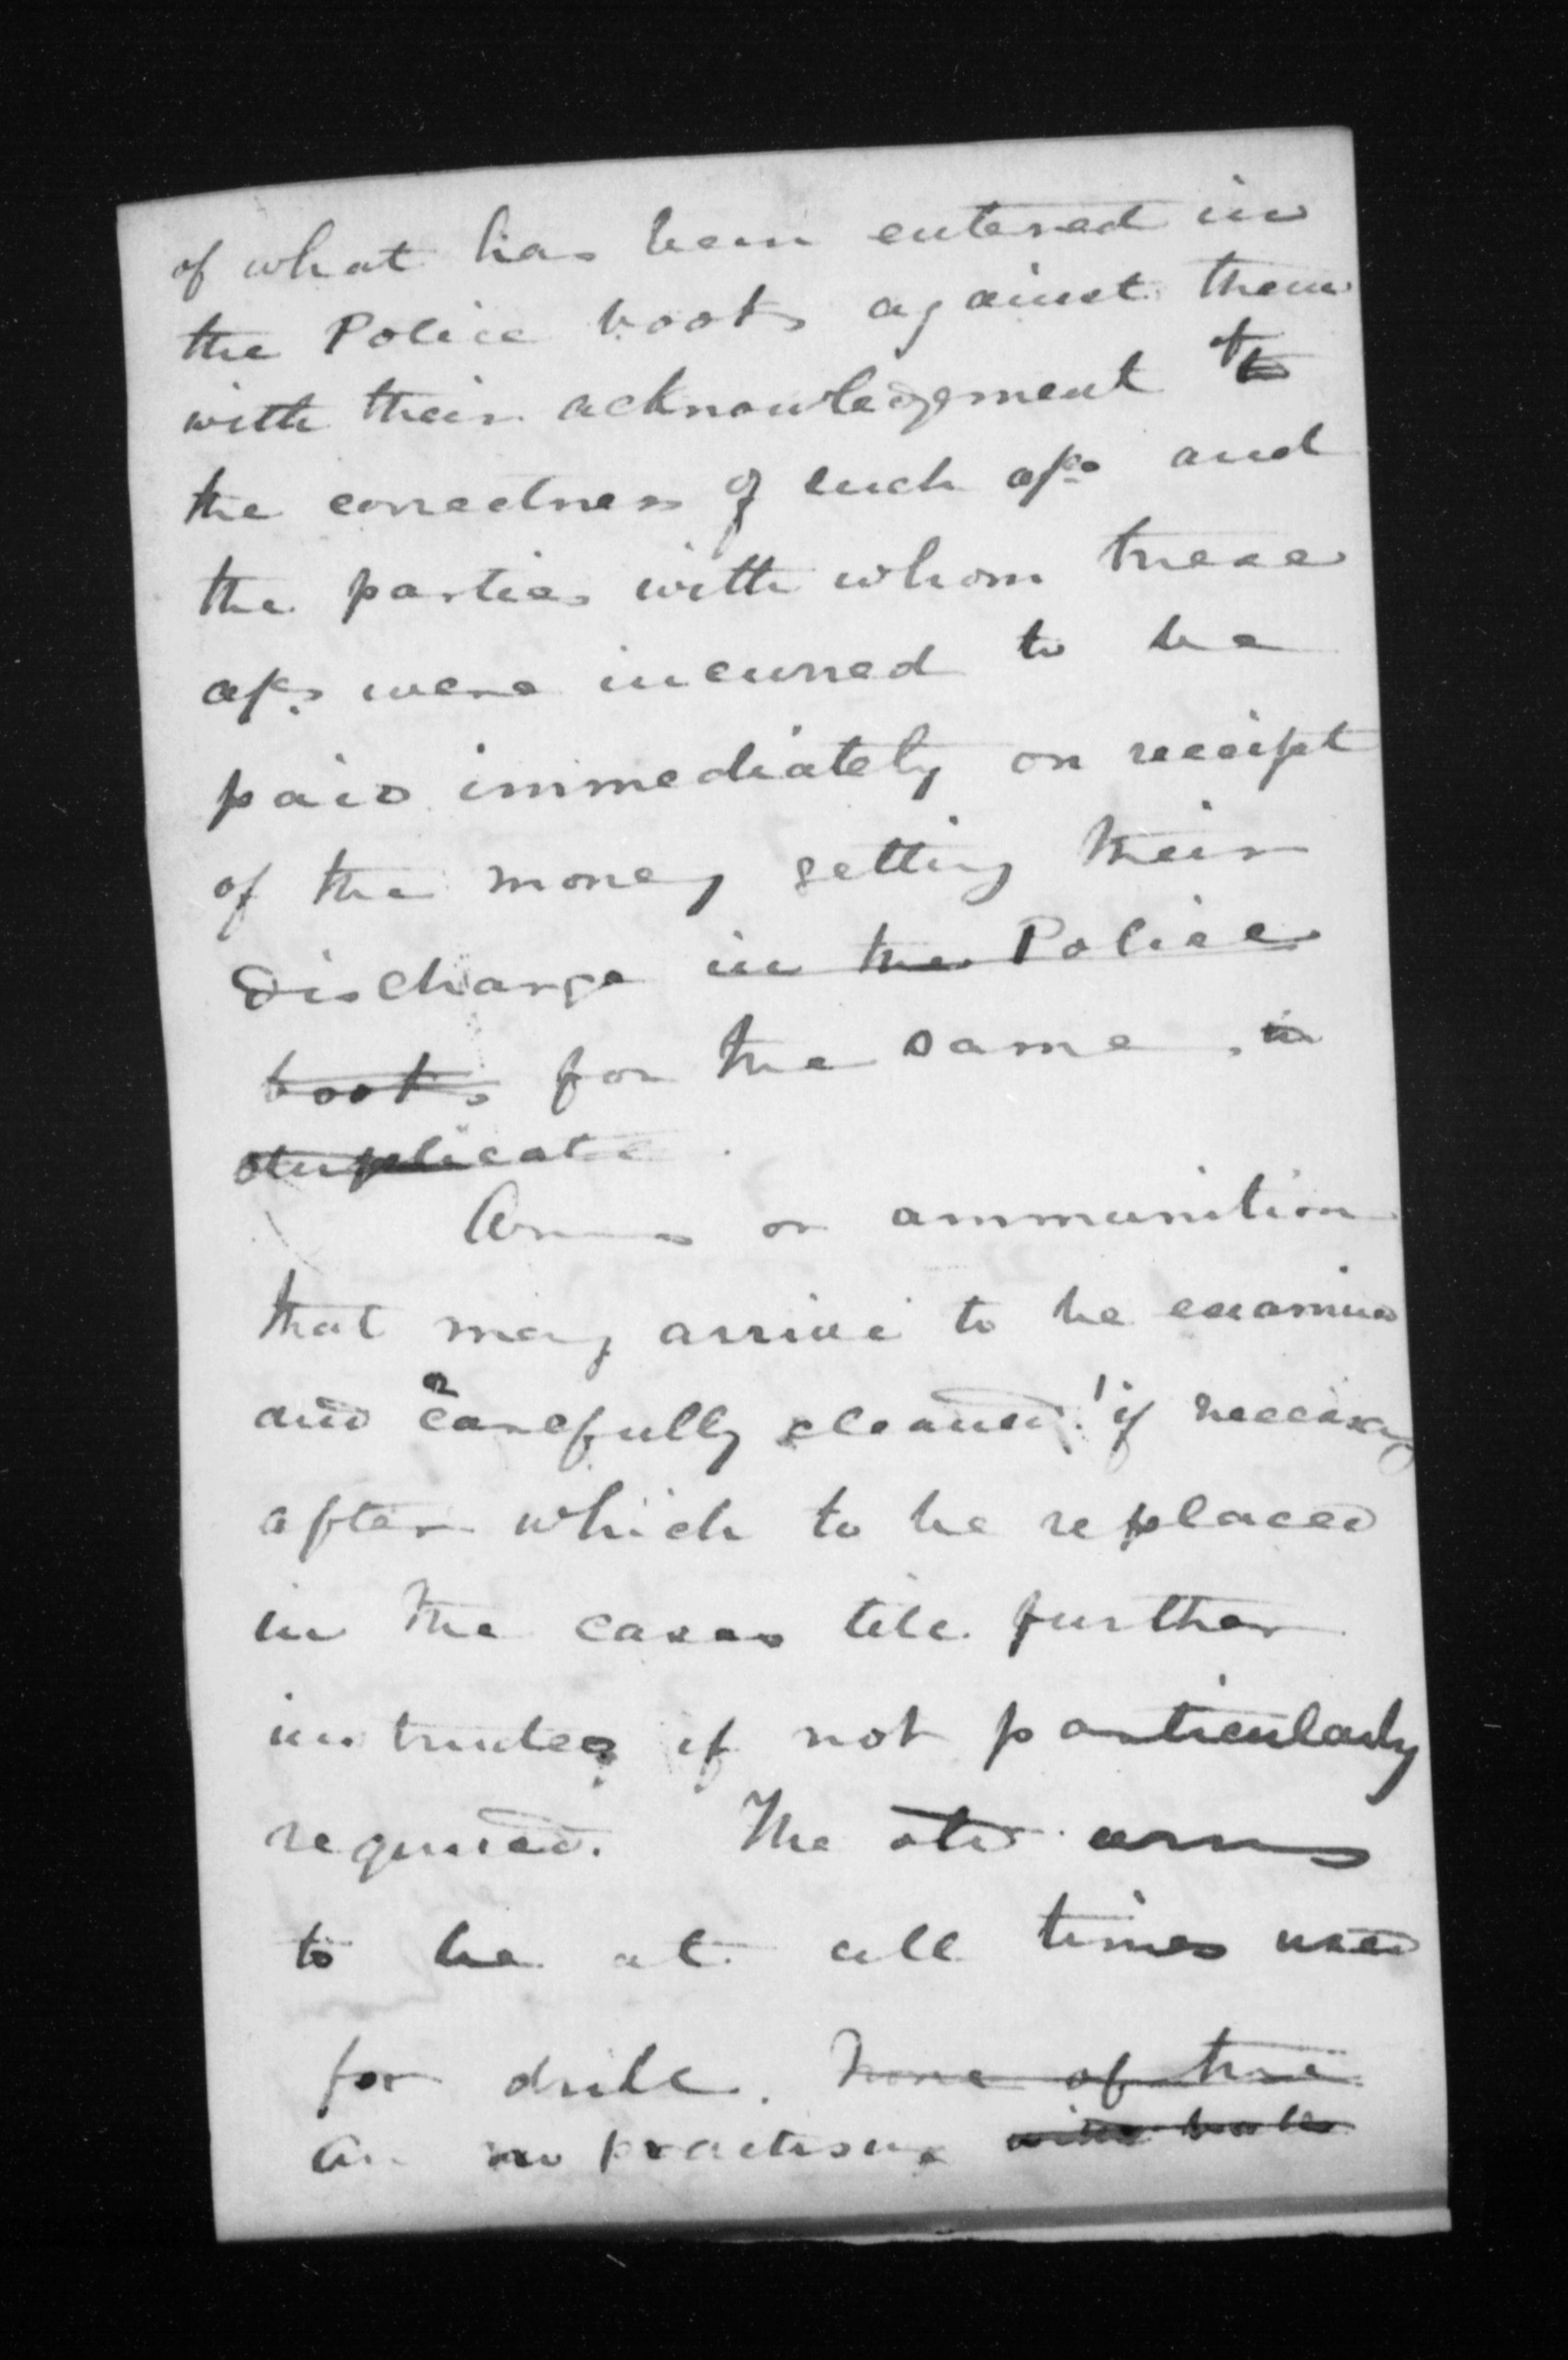 of what has been entered in
the Police books against them
with their acknowledgement of to
the correctness of such a/cs and
the parties with whom these
a/cs were incurred to be
paid immediately on receipt
of the money getting their
Discharge in the Police
books for the same, in
duplicate.
Arms or ammunition
that may arrive to be examined
and carefully cleaned if necessary
after which to be replaced
in the cases till further
instructed if not particularly
required. The old arms
to be at all times used
for drill. None of the
practising with balls